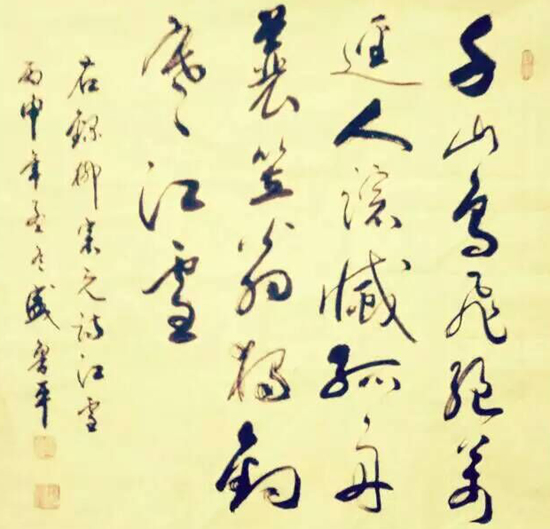 千山鳥飛絕萬
逕人踪滅孤舟
蓑笠翁獨釣
寒江雪
右錄柳宗元詩江雪
丙申年冬盛魯平